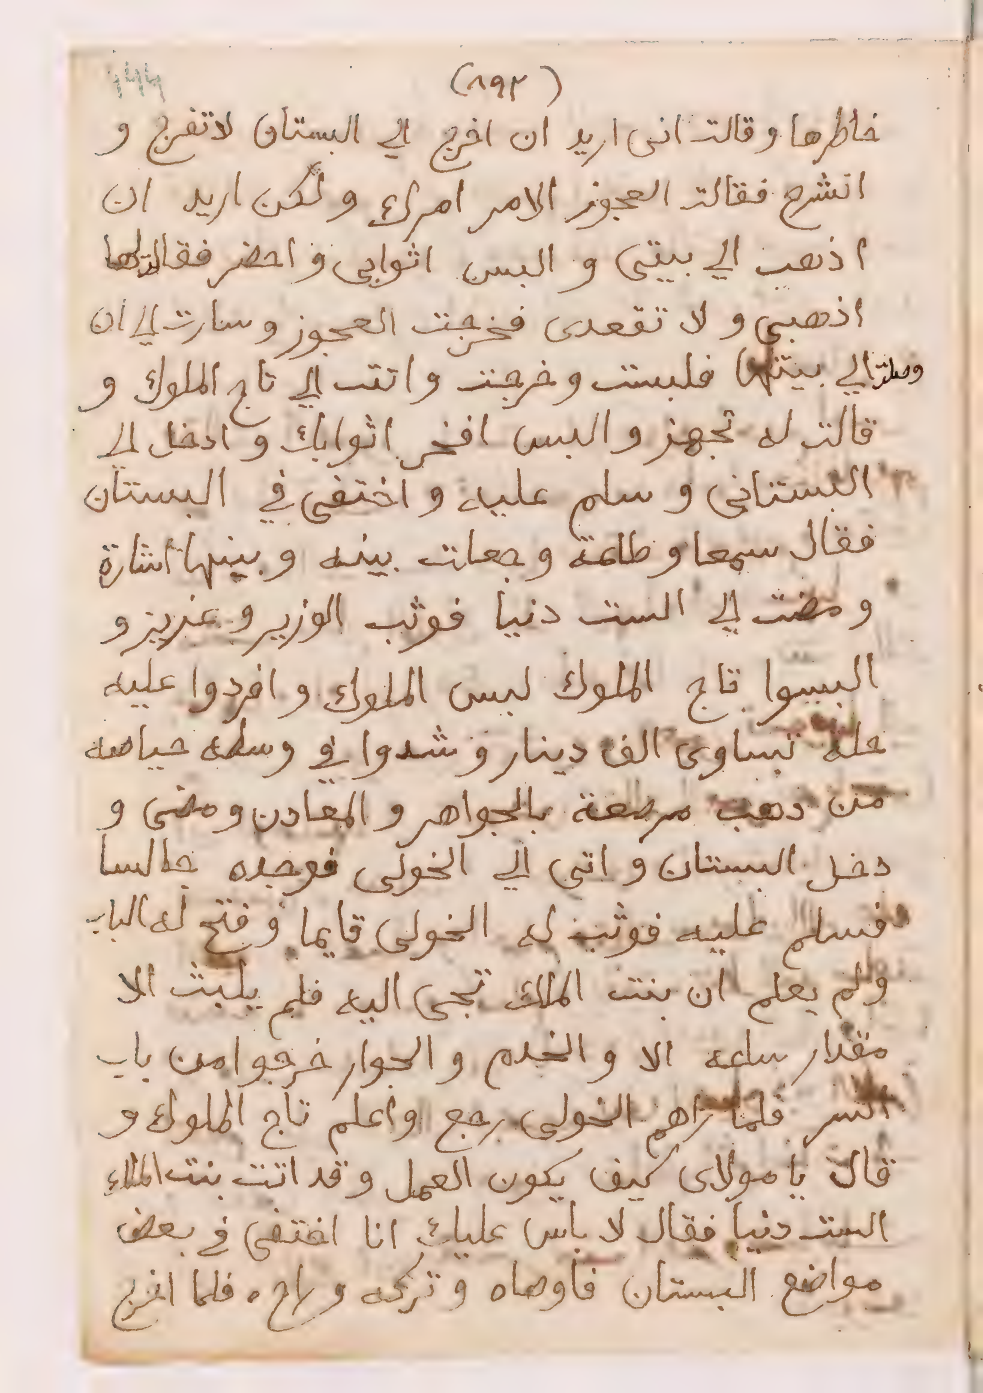 (٨٩٢)
خاطرها و قالت انى اريد ان اخرج الي البستان لاتفرج و
انشرح فقالت العجوز الامر امرك و لكن اريد ان
اذهب الي بيتى و البس اثوابى و احضر فقالت لها
اذهبى و لا تقعدى فخرجت العجوز و سارت الي ان
وصلت الي بيتها فلبست و خرجت و اتت الي تاج الملوك و
قالت له تجهز و البس افخر اثوابك و ادخل الي
البستانى و سلم عليه و اختفى في البستان
فقال سمعا و طاعة و جعلت بينه و بينها اشارة
و مضت الي الست دنيا فوثب الوزير و عزيز و
البسوا تاج الملوك لبس الملوك و افردوا عليه
حلة تساوى الف دينار و شدوا في وسطه حياصه
من ذهب مرصعة بالجواهر و المعادن و مضى و
دخل البستان و اتى الي الخولى فوجده جالسا
فسلم عليه فوثب له الخولى قايما و فتح له الباب
ولم يعلم ان بنت الملك تجى اليه فلم يلبث الا
مقدار ساعه الا و الخدم و الجوار خرجوا من باب
السر فلما راهم الخولى رجع واعلم تاج الملوك و
قال يا مولاى كيف يكون العمل و قد اتت بنت الملك
الست دنيا فقال لا باس عليك انا اختفى في بعض
مواضع البستان فاوصاه و تركه و راح ٠ فلما اخرج